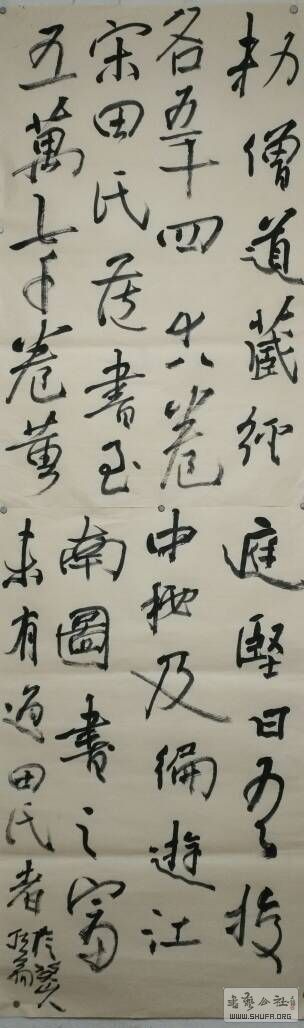 敕僧道藏經
各五千四十八卷
宋田氏藏書至
五萬七千卷黄
庭堅曰吾校
中秘及徧遊江
南圖書之富
未有過田氏者
WWW.SHUFA.ORG